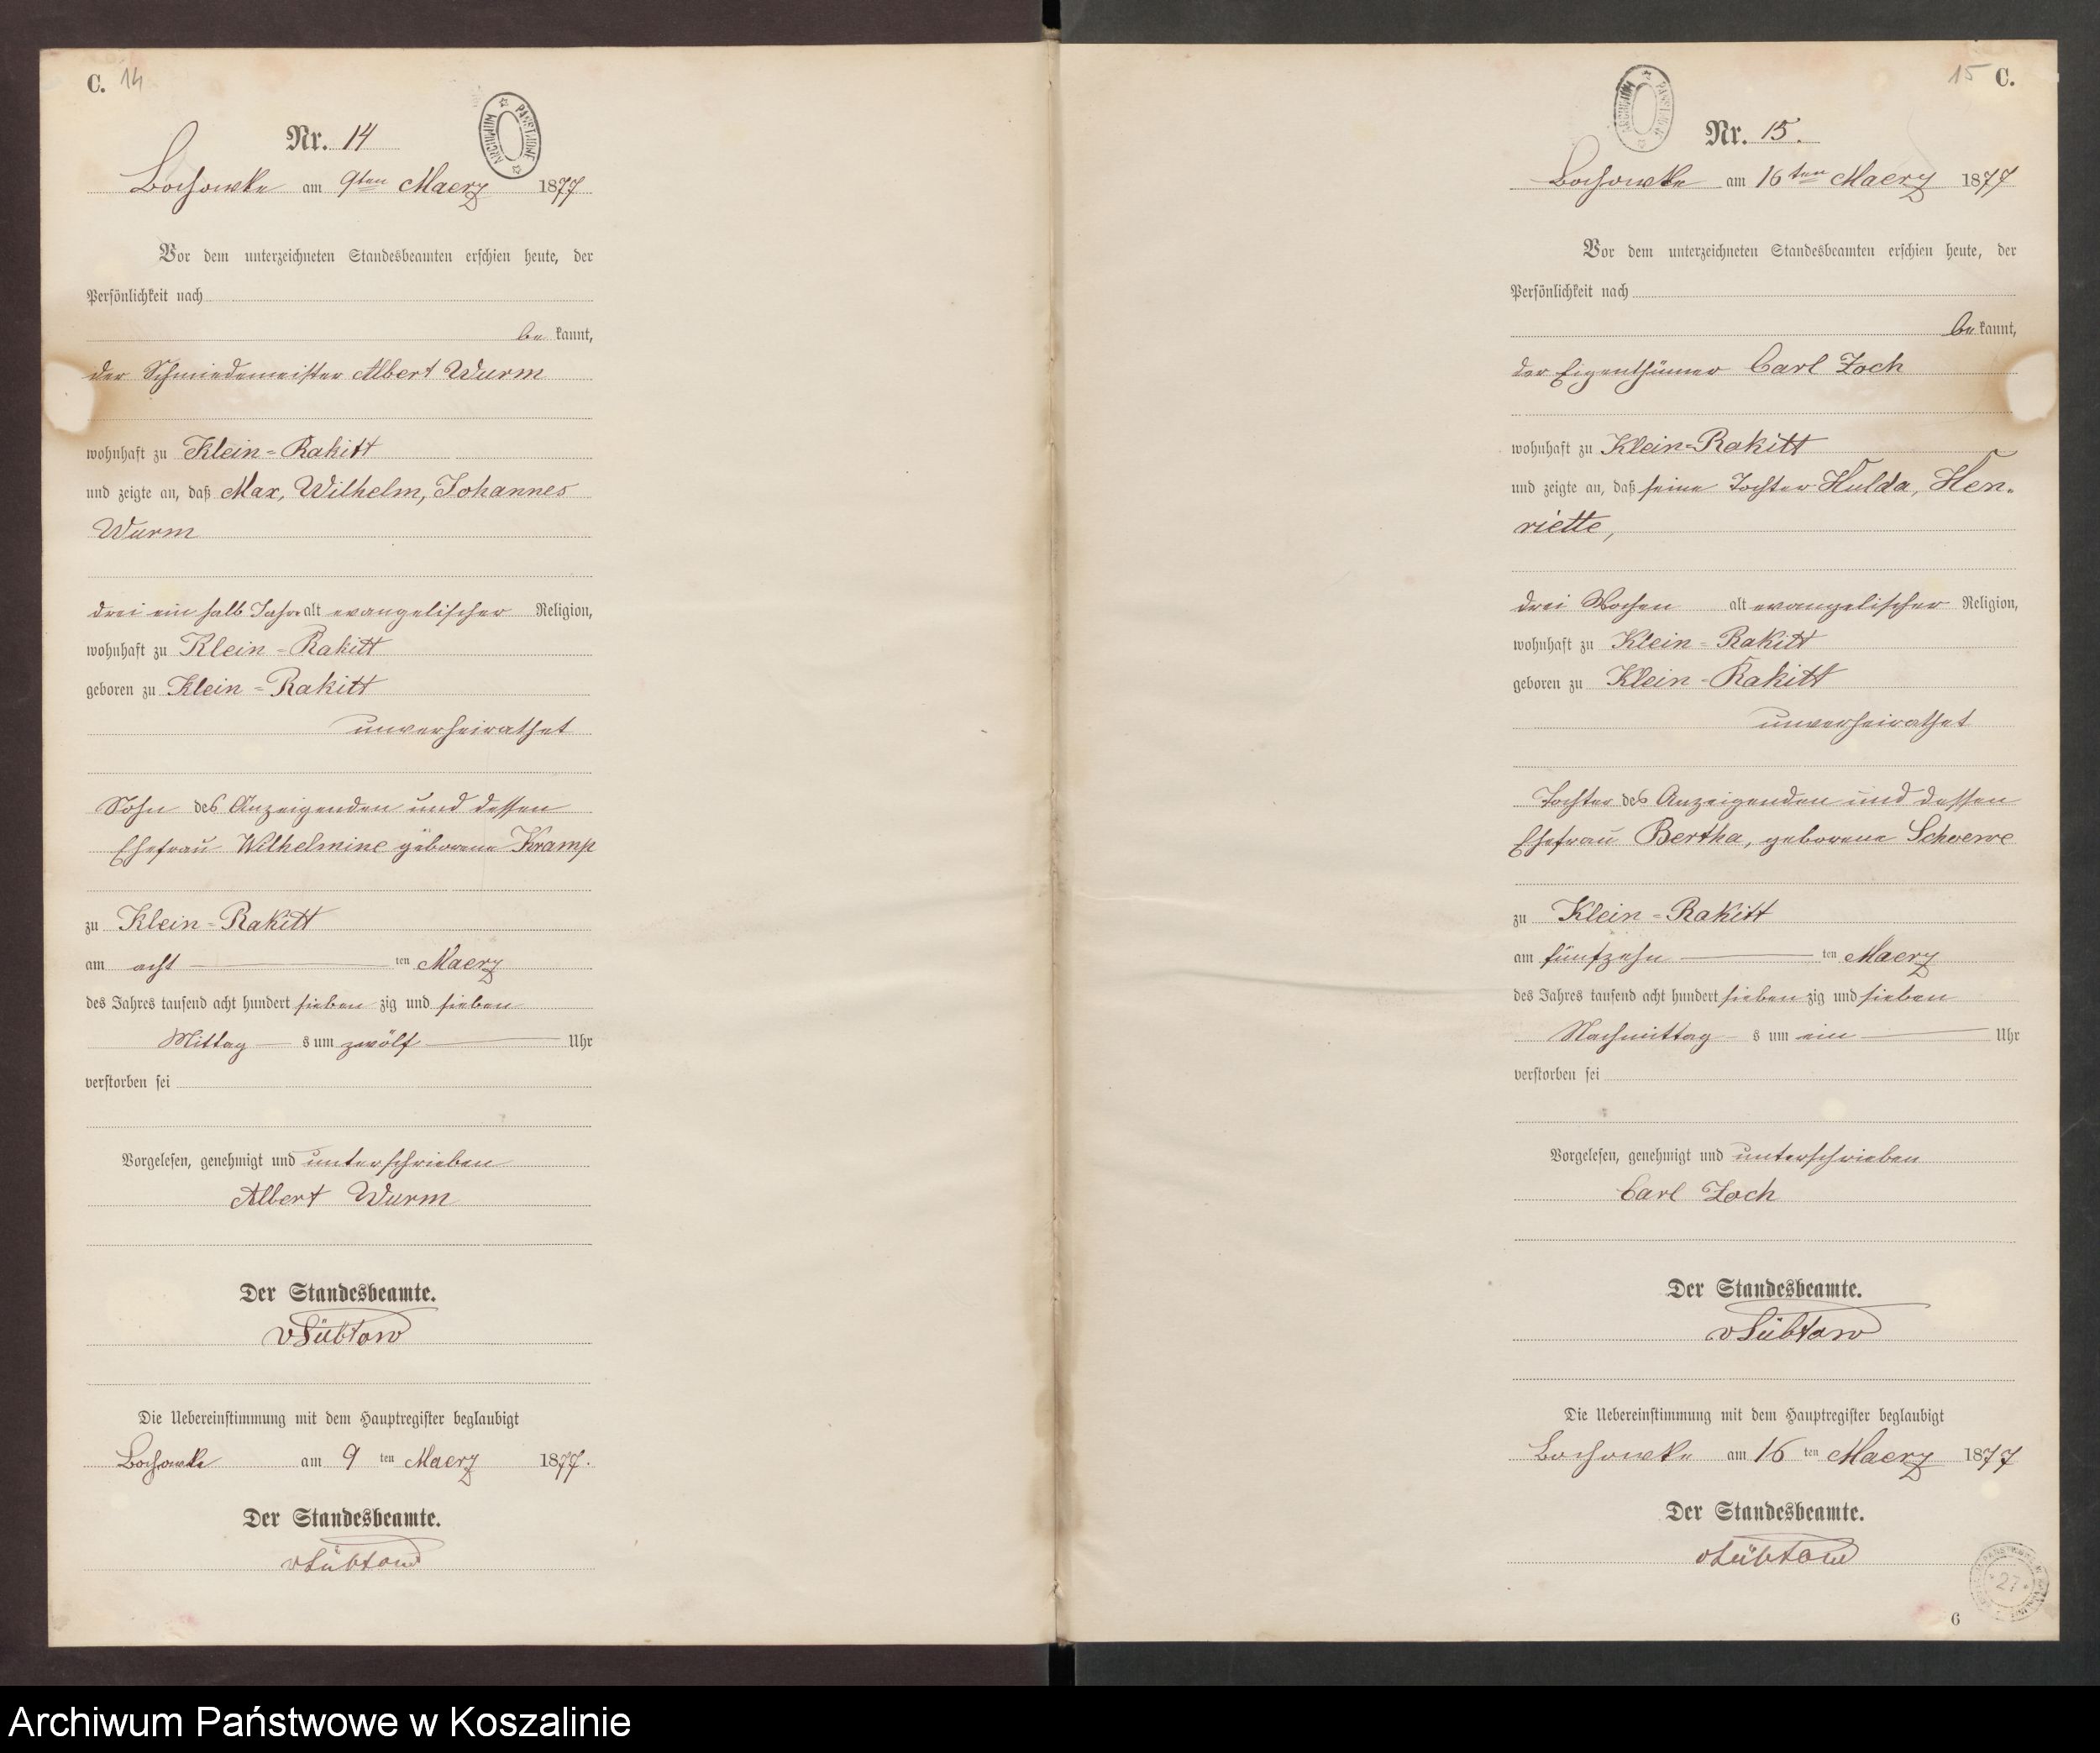 C. 14
ARCHIWUM PAŃSTWOWE
Nr. 14
Bochowke am 9ten Maerz 1877
Vor dem unterzeichneten Standesbeamten erschien heute, der
Persönlichkeit nach
be kannt,
der Schmiedemeister Albert Wurm
wohnhaft zu Klein-Rakitt
und zeigte an, daß Max, Wilhelm, Johannes
Wurm
drei ein halb Jahre alt evangelischer Religion,
wohnhaft zu Klein-Rakitt
geboren zu Klein-Rakitt
unverheirathet
Sohn des Anzeigenden und dessen
Ehefrau Wilhelmine geborene Kramp
zu Klein-Rakitt
am acht ten Maerz
des Jahres tausend acht hundert sieben zig und sieben
Mittag s um zwölf Uhr
verstorben sei
Vorgelesen, genehmigt und unterschrieben
Albert Wurm
Der Standesbeamte.
vLübtow
Die Uebereinstimmung mit dem Hauptregister beglaubigt
Bochowke am 9 ten Maerz 1877.
Der Standesbeamte.
vLübtow
15 C.
ARCHIWUM PAŃSTWOWE
Nr. 15.
Bochowke am 16ten Maerz 1877
Vor dem unterzeichneten Standesbeamten erschien heute, der
Persönlichkeit nach
be kannt,
der Eigenthümer Carl Zoch
wohnhaft zu Klein-Rakitt
und zeigte an, daß seine Tochter Hulda, Hen-
riette,
drei Wochen alt evangelischer Religion,
wohnhaft zu Klein-Rakitt
geboren zu Klein-Rakitt
unverheirathet
Tochter des Anzeigenden und dessen
Ehefrau Bertha, geborene Schwewe
zu Klein-Rakitt
am fünfzehn ten Maerz
des Jahres tausend acht hundert sieben zig und sieben
Nachmittag s um ein Uhr
verstorben sei
Vorgelesen, genehmigt und unterschrieben
Carl Zoch
Der Standesbeamte.
vLübtow
Die Uebereinstimmung mit dem Hauptregister beglaubigt
Bochowke am 16 ten Maerz 1877
Der Standesbeamte.
vLübtow
27
6
Archiwum Państwowe w Koszalinie